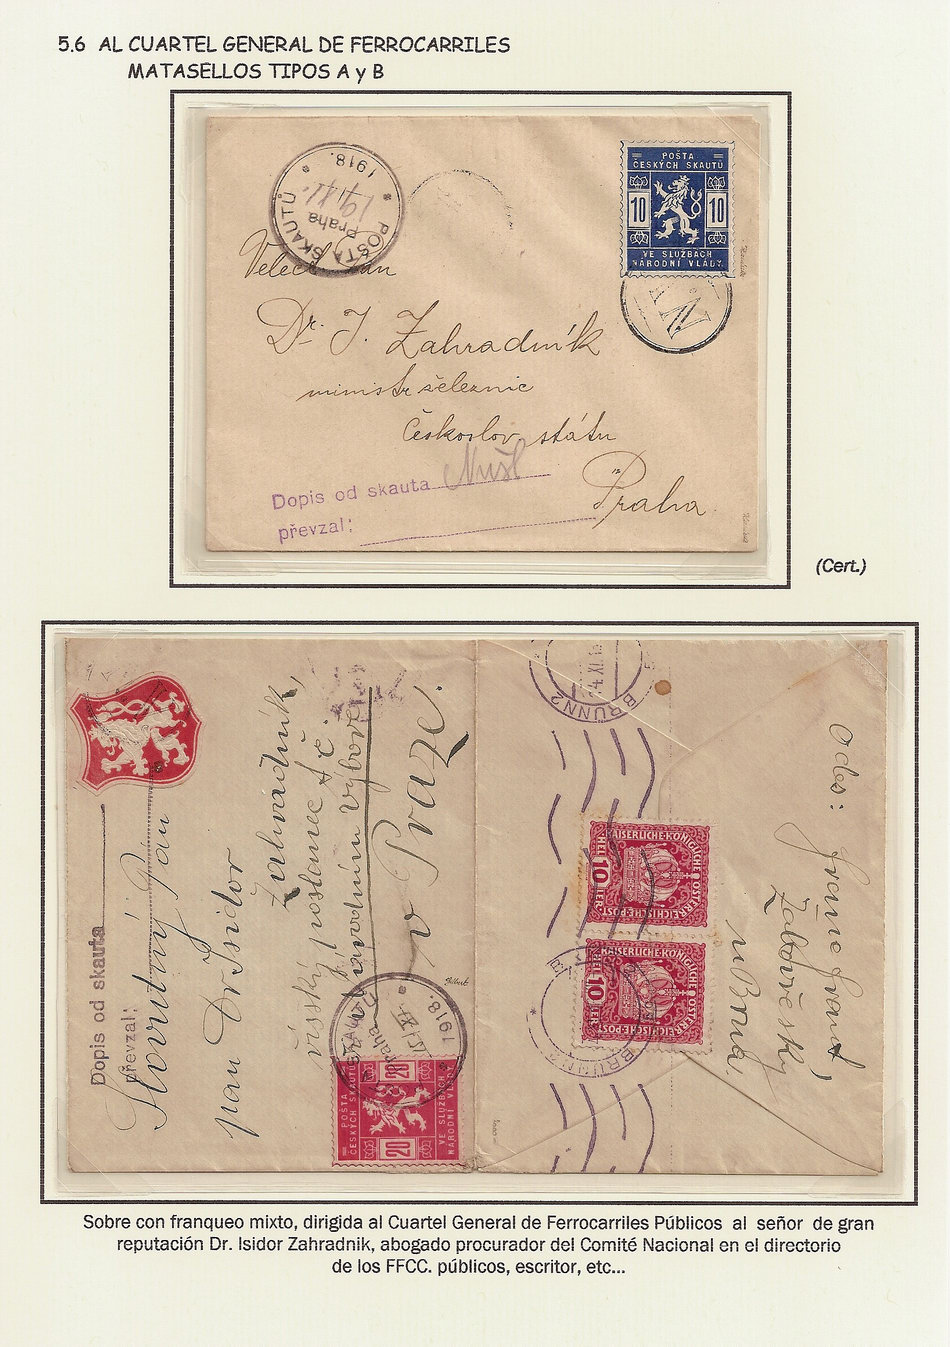 5.6 AL CUARTEL GENERAL DE FERROCARRILES
MATASELLOS TIPOS A y B
POŠTA SKAUTŮ
Praha
19/XI.
1918.
POŠTA
ČESKÝCH SKAUTŮ
10 10
VE SLUŽBÁCH
NÁRODNÍ VLÁDY.
N
Velect. Pan
Dr. I. Zahradník
ministr železnic
Českoslov. státu
Praha
Dopis od skauta
převzal:
(Cert.)
Dopis od skauta
převzal:
Slovutný Pán
pan Dr Isidor
Zahradník,
říšský poslanec t. č.
v Národním Výboře
v Praze.
SKAUTŮ
Praha
1918.
POŠTA
ČESKÝCH SKAUTŮ
20 20
VE SLUŽBÁCH
NÁRODNÍ VLÁDY.
BRÜNN 2
XI.
KAISERLICHE·KÖNIGLICHE ÖSTERREICHISCHE·POST
10 HELLER
KAISERLICHE·KÖNIGLICHE ÖSTERREICHISCHE·POST
10 HELLER
BRÜNN 2
Odes:
Žabovřesky
u Brna.
Sobre con franqueo mixto, dirigida al Cuartel General de Ferrocarriles Públicos al señor de gran
reputación Dr. Isidor Zahradnik, abogado procurador del Comité Nacional en el directorio
de los FFCC. públicos, escritor, etc...